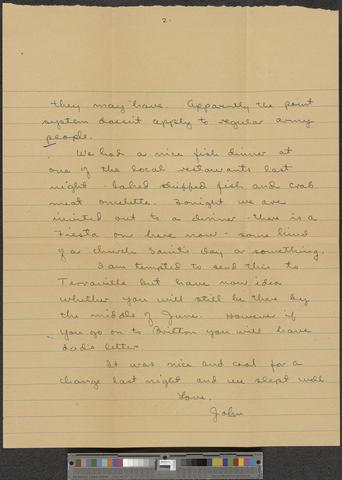 2.
they may have. Apparently the point
system doesn't apply to regular army
people.
We had a nice fish dinner at
one of the local restaurants last
night - baked stripped fish and crab
meat omelette. Tonight we are
invited out to a dinner - there is a
Fiesta on here now - some kind
of a church Saint's day or something.
I am tempted to send this to
Terraville but have now idea
whether you will still be there by
the middle of June. However if
you go on to Britton you will have
Dad's letter.
It was nice and cool for a
change last night and we slept well.
Love,
John